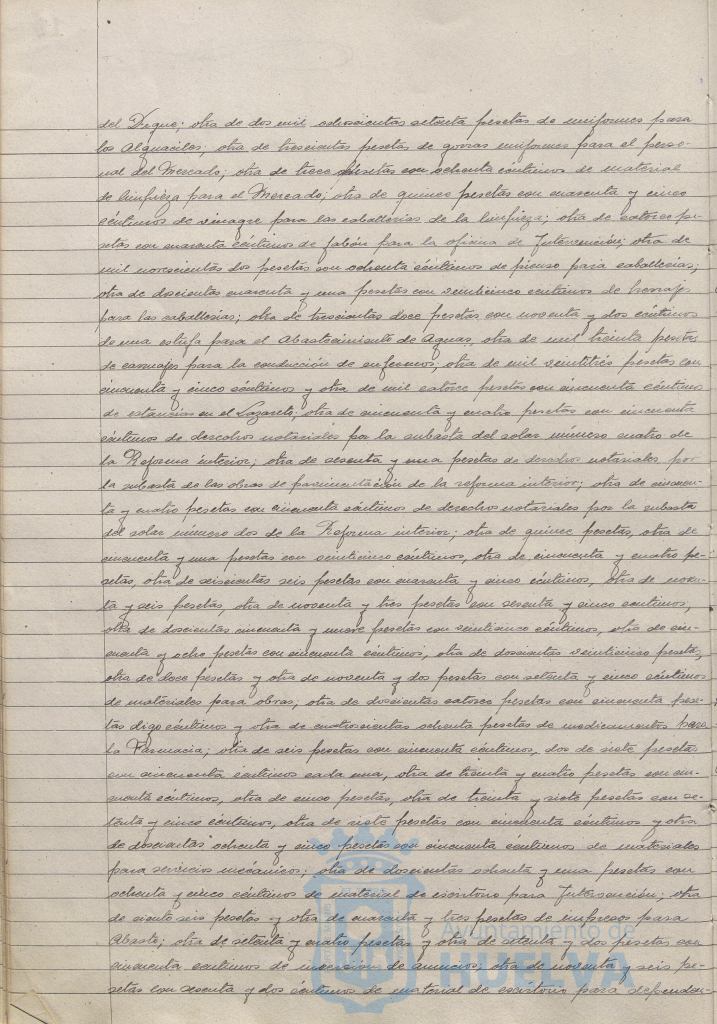 del Dique; otra de dos mil ochocientas setenta pesetas de uniformes para
los Alguaciles; otra de trescientas pesetas de gorras uniformes para el perso-
nal del Mercado; otra de trece pesetas con ochenta céntimos de material
de limpieza para el Mercado; otra de quince pesetas con cuarenta y cinco
céntimos de vinagre para las caballerias de la limpieza; otra de catorce pe-
setas con cuarenta céntimos de jabón para la oficina de Intervención; otra de
mil novecientas dos pesetas con ochenta céntimos de pienso para caballerias;
otra de doscientas cuarenta y una pesetas con veinticinco centimos de herrajes
para las caballerias; otra de trescientas doce pesetas con noventa y dos céntimos
de una estufa para el Abastecimiento de Aguas, otra de mil treinta pesetas
de carruajes para la conducción de enfermos; otra de mil veintitrés pesetas con
cincuenta y cinco céntimos y otra de mil catorce pesetas con cincuenta céntimos
de estancias en el Lazareto; otra de cincuenta y cuatro pesetas con cincuenta
céntimos de derechos notariales por la subasta del solar número cuatro de
la Reforma interior; otra de sesenta y una pesetas de derechos notariales por
la subasta de las obras de pavimentación de la reforma interior; otra de cincuen-
ta y cuatro pesetas con cincuenta céntimos de derechos notariales por la subasta
del solar número dos de la Reforma interior; otra de quince pesetas, otra de
cincuenta y una pesetas con veinticinco céntimos, otra de cincuenta y cuatro pe-
setas, otra de seiscientas seis pesetas con cuarenta y cinco céntimos, otra de noven-
ta y seis pesetas, otra de noventa y tres pesetas con sesenta y cinco centimos,
otra de doscientas cincuenta y nueve pesetas con veinticinco céntimos, otra de cin-
cuenta y ocho pesetas con cincuenta céntimos, otra de doscientas veinticinco pesetas,
otra de doce pesetas y otra de noventa y dos pesetas con setenta y cinco céntimos
de materiales para obras; otra de doscientas catorce pesetas con cincuenta pese-
tas digo céntimos y otra de cuatrocientas ochenta pesetas de medicamentos para
la Farmacia; otra de seis pesetas con cincuenta céntimos, dos de siete pesetas
con cincuenta céntimos cada una, otra de treinta y cuatro pesetas con cin-
cuenta céntimos, otra de cinco pesetas, otra de treinta y siete pesetas con se-
tenta y cinco céntimos, otra de siete pesetas con cincuenta céntimos y otra
de doscientas ochenta y cinco pesetas con cincuenta céntimos de materiales
para servicios mecánicos; otra de doscientas ochenta y una pesetas con
ochenta y cinco céntimos de material de escritorio para Intervención; otra
de ciento seis pesetas y otra de cuarenta y tres pesetas de impresos para
Abasto; otra de setenta y cuatro pesetas y otra de setenta y dos pesetas con
cincuenta centimos de inserción de anuncios; otra de noventa y seis pe-
setas con sesenta y dos céntimos de material de escritorio para dependen-
Ayuntamiento de
HUELVA